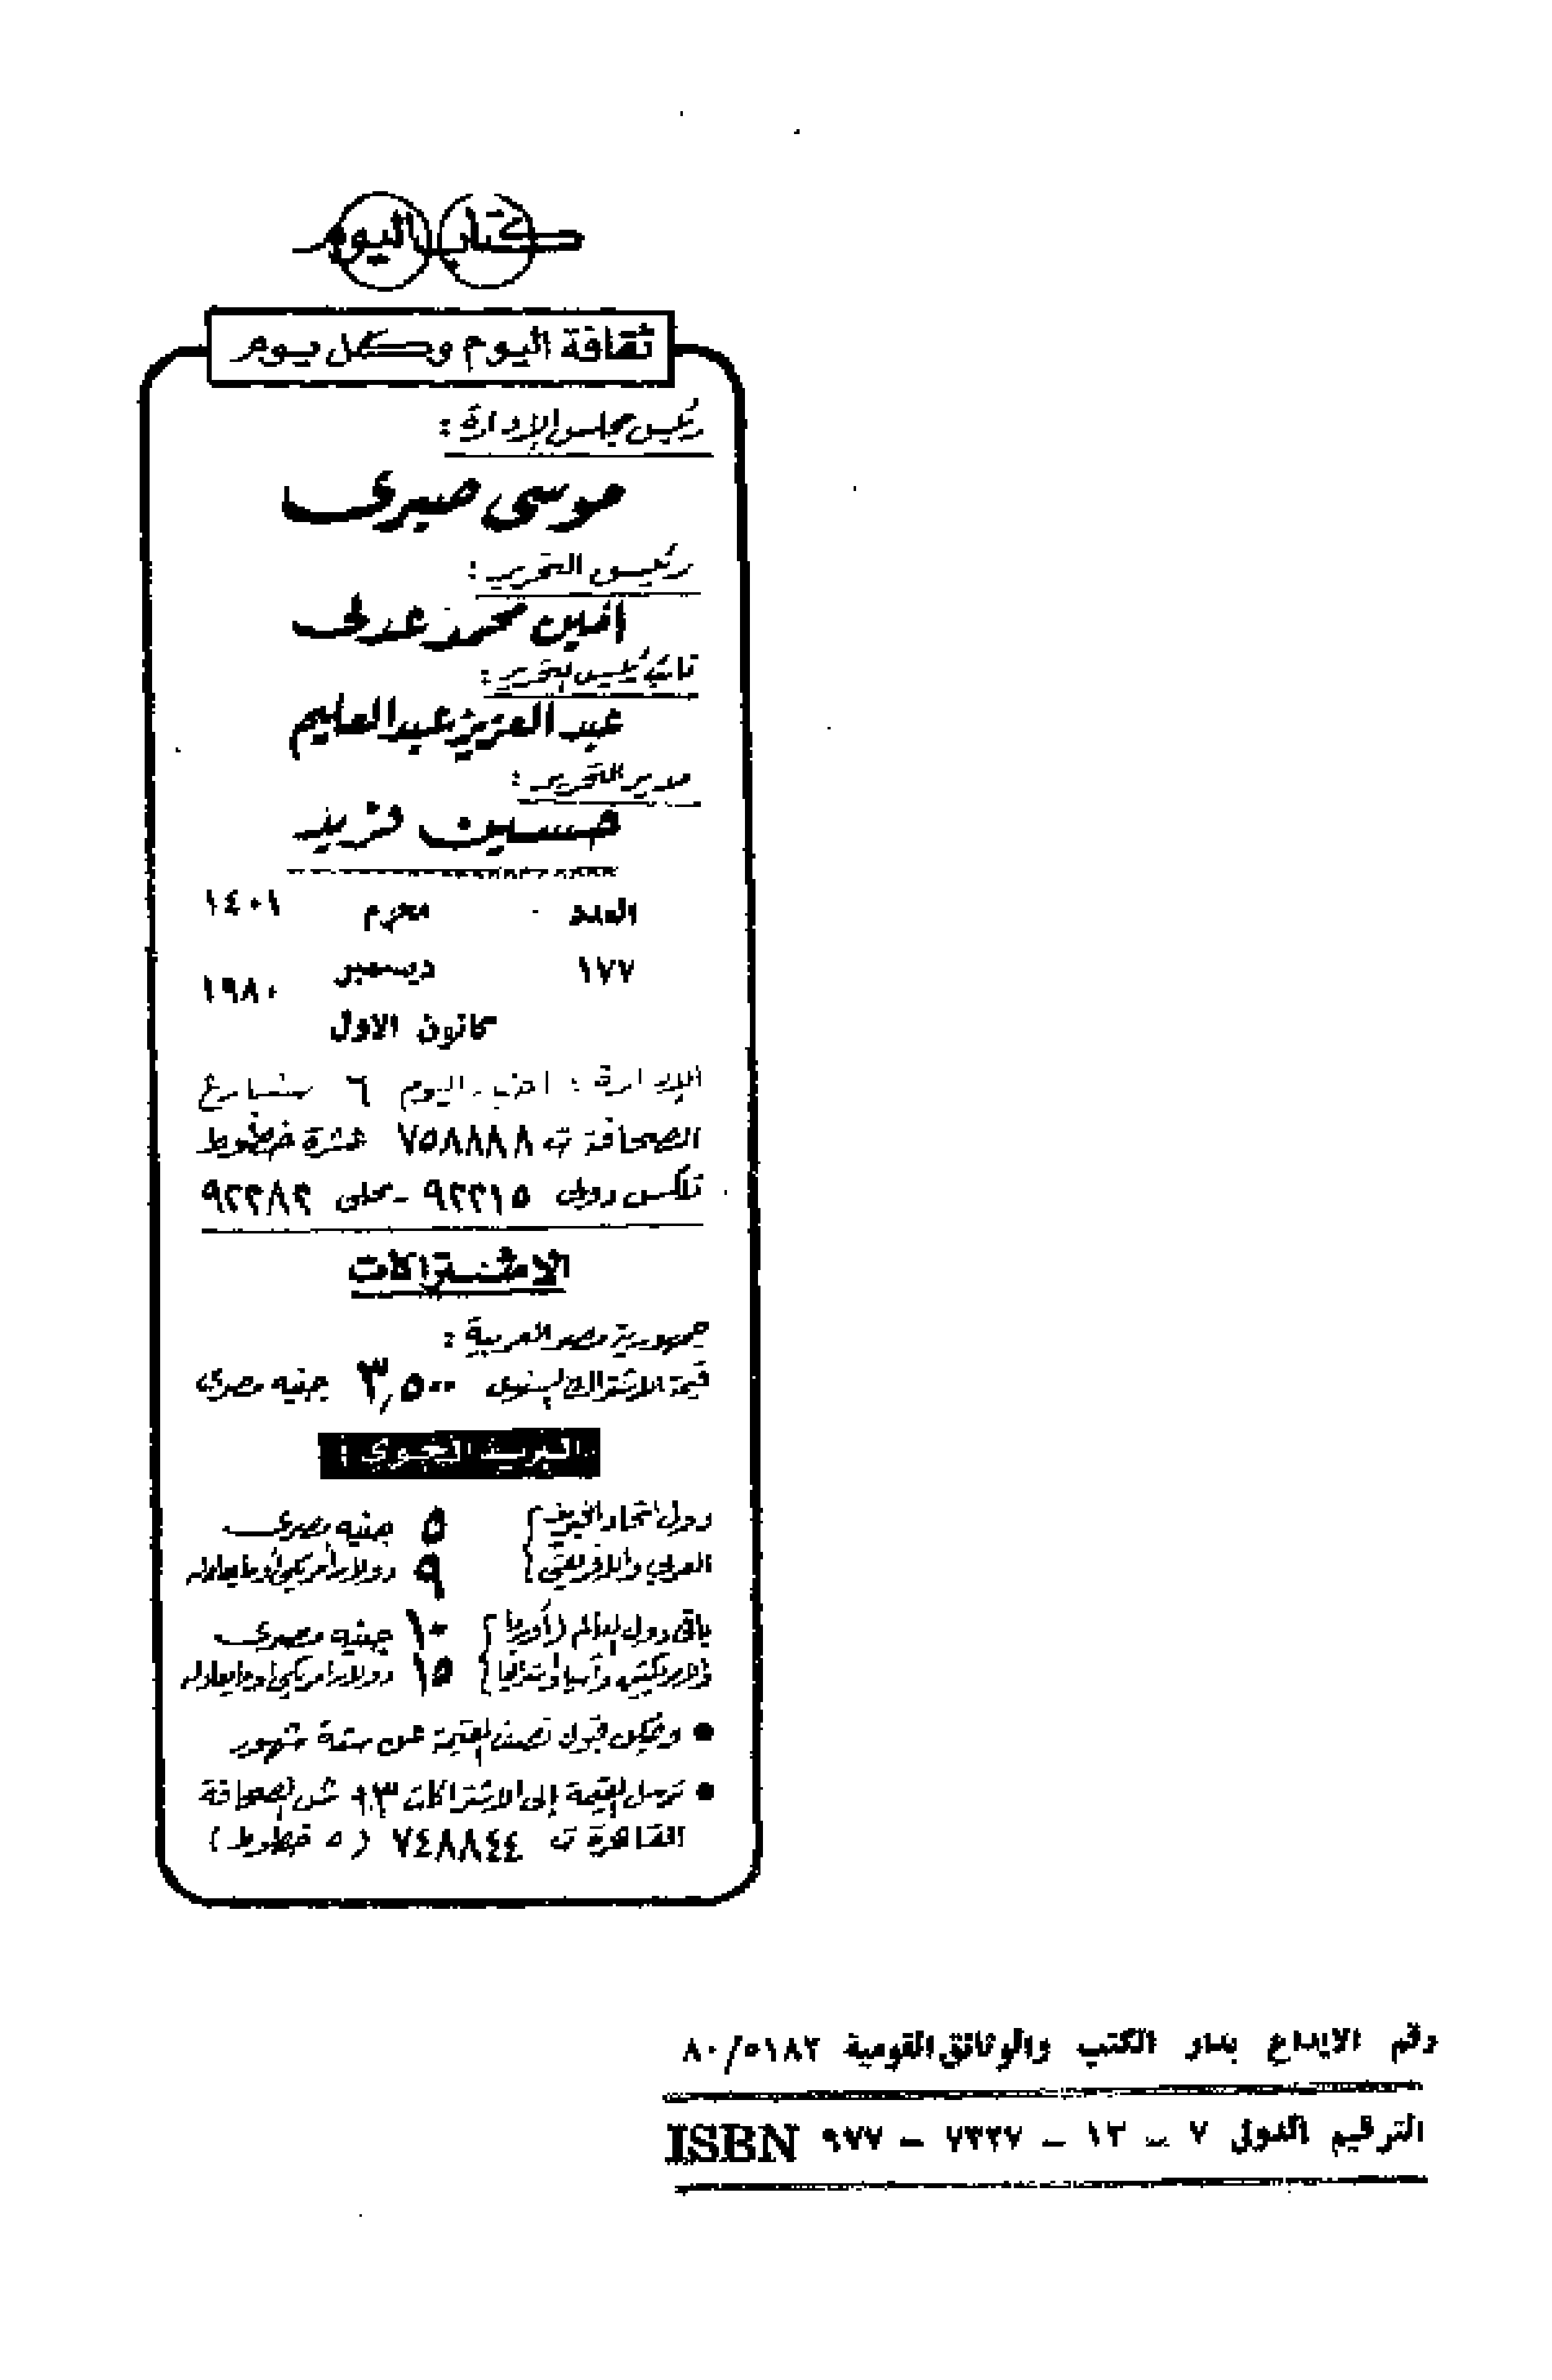 كتاب اليوم
ثقافة اليوم وكل يوم
رئيس مجلس الإدارة :
موسى صبرى
رئيس التحرير :
أمين محمد عدلى
نائب رئيس التحرير :
عبد العزيز عبد العليم
مدير التحرير :
حسين فريد
العدد محرم ١٤٠١
١٧٧ ديسمبر ١٩٨٠
كانون الاول
الإدارة : اخبار اليوم ٦ شارع
الصحافة ت ٧٥٨٨٨٨ عشرة خطوط
تلكس دولى ٩٢٢١٥ - محلى ٩٢٢٨٢
الاشتراكات
جمهورية مصر العربية :
قيمة الاشتراك السنوى ٣,٥٠٠ جنيه مصرى
البريد الجوي :
دول اتحاد البريد ٥ جنيه مصرى
العربي والافريقى ٩ دولار أمريكى أو ما يعادله
باقى دول العالم (أوربا ١٠ جنيه مصرى
والأمريكتين وآسيا وأستراليا) ١٥ دولار أمريكى أو ما يعادله
• ويمكن قبول نصف القيمة عن ستة شهور
• ترسل القيمة إلى الاشتراكات ٣ ش الصحافة
القاهرة ت ٧٤٨٨٤٤ (٥ خطوط)
رقم الايداع بدار الكتب والوثائق القومية ٨٠/٥١٨٢
الترقيم الدولى ٧ - ١٢ - ٧٣٢٧ - ٩٧٧ ISBN